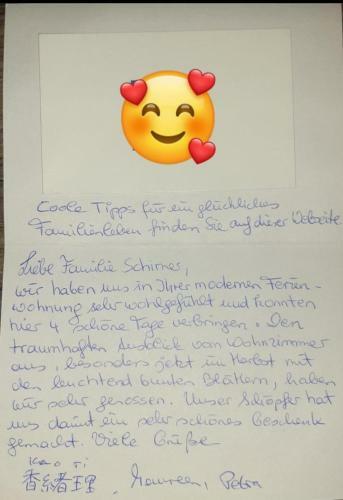 Coole Tipps für ein glückliches
Familienleben finden Sie auf dieser Webseite
Liebe Familie Schirner,
wir haben uns in Ihrer modernen Ferien-
wohnung sehr wohlgefühlt und konnten
hier 4 schöne Tage verbringen. Den
traumhaften Ausblick vom Wohnzimmer
aus, besonders jetzt im Herbst mit
den leuchtend bunten Blättern, haben
wir sehr genossen. Unser Schöpfer hat
uns damit ein sehr schönes Geschenk
gemacht. Viele Grüße
Kao ri
香緒理, Maureen, Petra